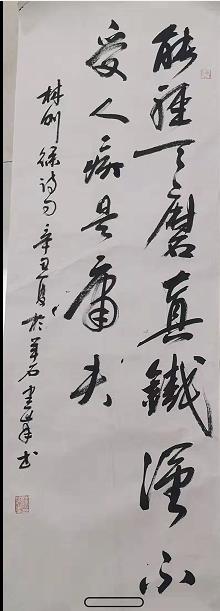 能經天磨真鐵漢不
受人是庸夫
林則徐詩句辛丑夏於石書